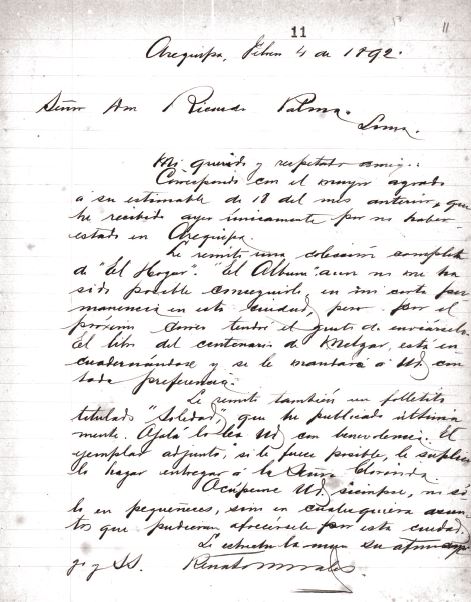 11
11
Arequipa, Febro 4 de 1892.
Señor Dn Ricardo Palma.
Lima.
Mi querido y respetado amigo:
Correspondo con el mayor agrado
á su estimable de 18 del mes anterior, que
he recibido ayer unicamente por no haber
estado en Arequipa.
Le remito una coleccion completa
de "El Hogar". "El Album" aun no me ha
sido posible conseguirlo, en mi corta per
manencia en esta ciudad, pero por el
próximo correo tendré el gusto de enviarselo.
El libro del centenario de Melgar, está en
cuadernándose y se le mandará á Ud. con
toda preferencia.
Le remito también un folletito
titulado "Soledad", que he publicado última
mente. Ojalá lo lea Ud. con benevolencia. El
ejemplar adjunto, si le fuese posible, le suplico
lo haga entregar á la Señora Clorinda.
Ocúpeme Ud. siempre, no só
lo en pequeñeces, sino en cualesquiera asun
tos que pudieran ofrecérsele por esta ciudad.
Le estrecha la mano su afmo ami
go y SS.
Renato Morales